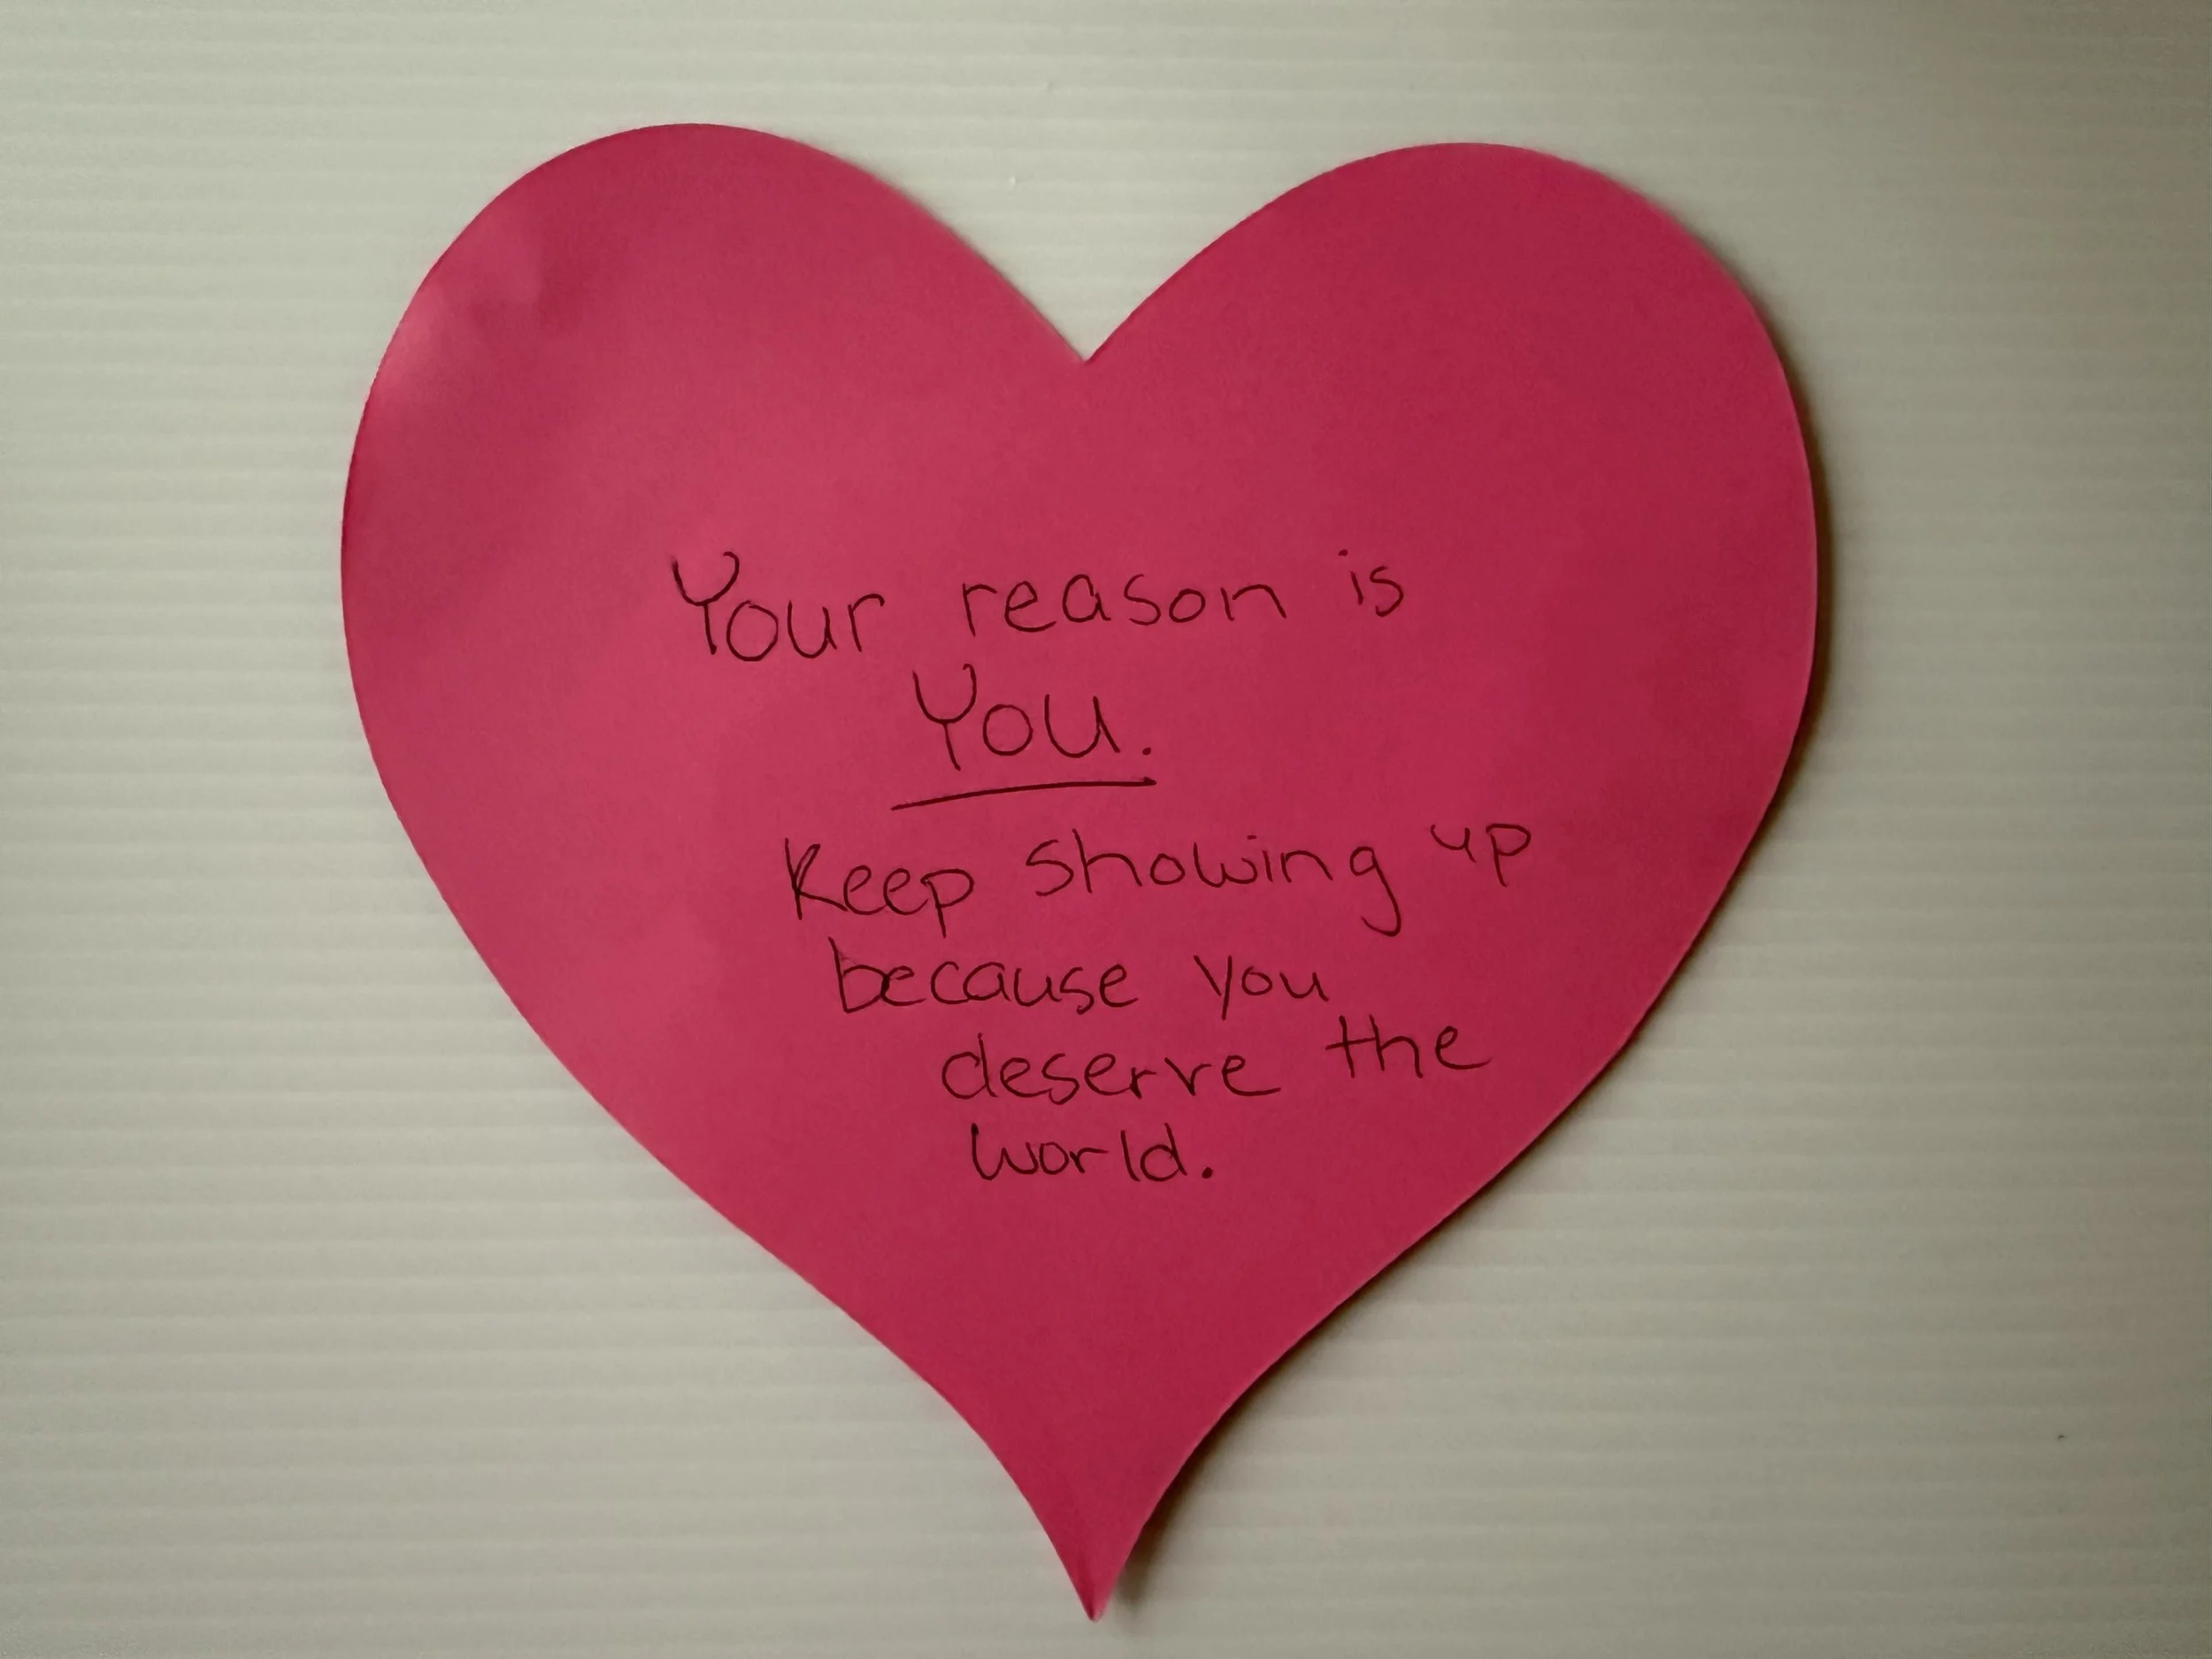 Your reason is
You.
Keep showing up
because you
deserve the
world.